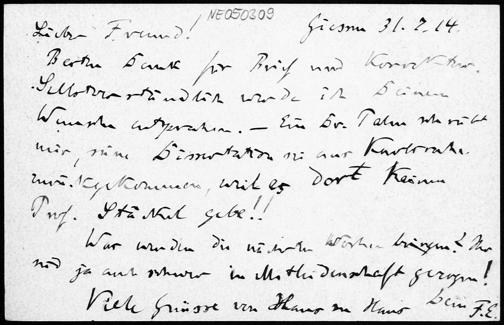 NE050309
Lieber Freund! Giessen 31.7.14.
Besten Dank für Brief und Korrektur.
Selbstverständlich werde ich Deinem
Wunsche entsprechen. — Ein Dr. Talm schreibt
mir, seine Dissertation sei aus Karlsruhe
zurückgekommen, weil es dort keinen
Prof. Stäckel gebe!!
Was werden die nächsten Wochen bringen? Ihr
seid ja auch schwer in Mitleidenschaft gezogen!
Viele Grüsse von Haus zu Haus Dein F.E.